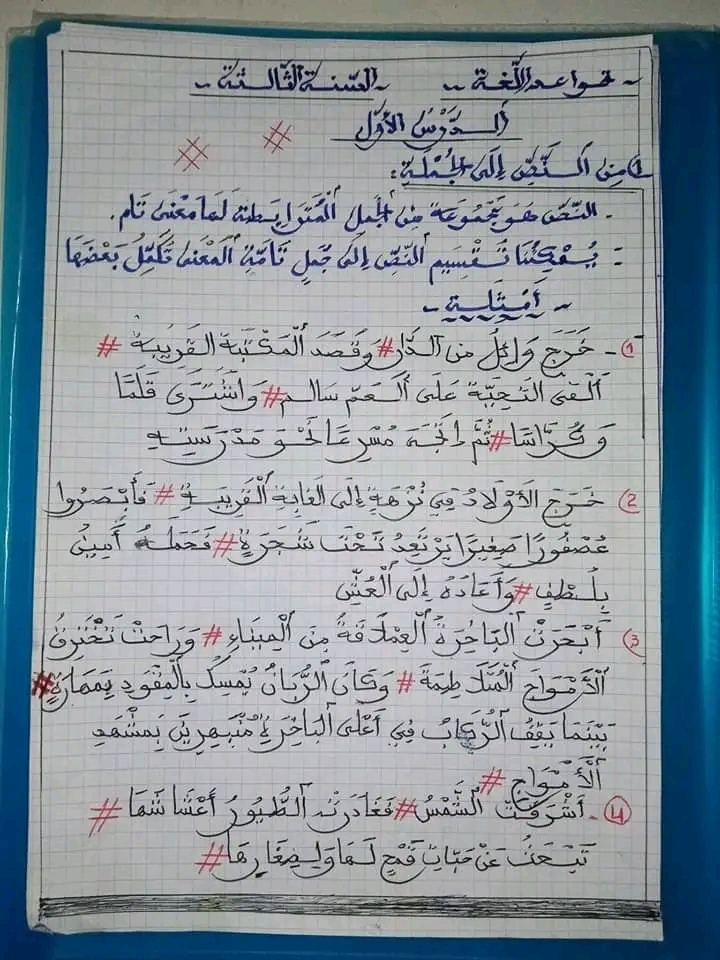 ~ قواعد اللّغة ~ ~ السّنة الثّالثة ~
الــدّرْسُ الأوّل
1) مِنَ الــنّصِّ إِلَى الجُمْلَةِ:
- النّصّ هوَ مَجْمُوعَة مِنَ الجُمَلِ المُتَرابِطة لَها مَعْنَى تَام.
- يُمْكِنُنَا تَقْسِيم النّصِّ إلَى جُمَلٍ تَامّةِ المَعْنَى تُكَمِّلُ بَعْضُهَا
~ أَمْثِلَة ~
1 - خَرَجَ وَائِلُ مِنَ الدّارِ # وَقَصَدَ المَكْتَبَةَ القَرِيبَةَ #
أَلْقَى التّحِيّةَ عَلَى العَمّ سَالِم # وَاشْتَرَى قَلَمًا
وَكُرّاسًا # ثُمَّ اتّجَهَ مُسْرِعًا نَحْوَ مَدْرَسَتِهِ
2 خَرَجَ الأَوْلَادُ فِي نُزْهَةٍ إِلَى الغَابَةِ القَرِيبَةِ # فَأَبْصَرُوا
عُصْفُورًا صَغِيرًا يَرْتَعِدُ تَحْتَ شَجَرَةٍ # فَحَمَلَهُ أَمِينُ
بِلُطْفٍ # وَأَعَادَهُ إِلَى العُشِّ
3 أَبْحَرَتْ البَاخِرَةُ العِمْلَاقَةُ مِنَ المِينَاءِ # وَرَاحَتْ تَخْتَرِقُ
الأَمْوَاجَ المُتَلَاطِمَةَ # وَكَانَ الرُّبَانُ يُمْسِكُ بِالمِقْوَدِ بِمَهَارَةٍ #
بَيْنَمَا يَقِفُ الرُّكَابُ فِي أَعْلَى البَاخِرَةِ مُنْبَهِرِينَ بِمَشْهَدِ
الأَمْوَاجِ #
4 - أَشْرَقَتْ الشّمْسُ # فَغَادَرَتِ الطُّيُورُ أَعْشَاشَهَا #
تَبْحَثُ عَنْ حَبّاتِ قَمْحٍ لَهَا وَلِصِغَارِهَا #